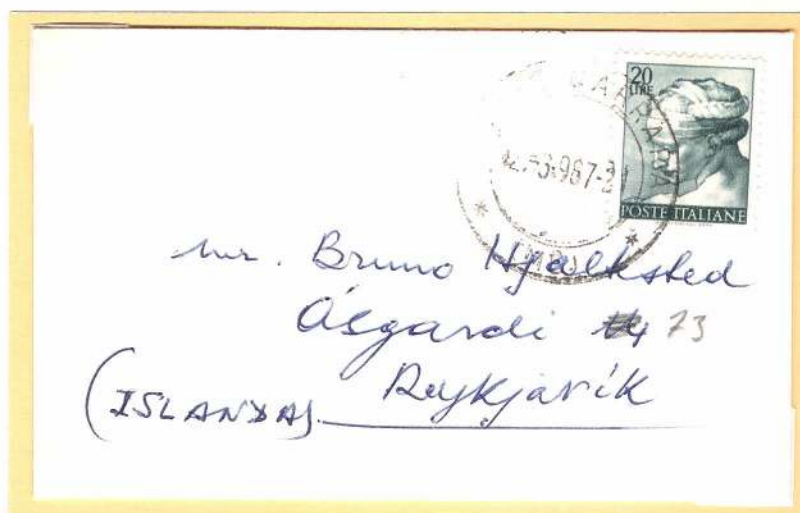 20
LIRE
POSTE ITALIANE
Mr. Bruno Hjaltested
Ásgardi 73
Reykjavík
(ISLANDA)